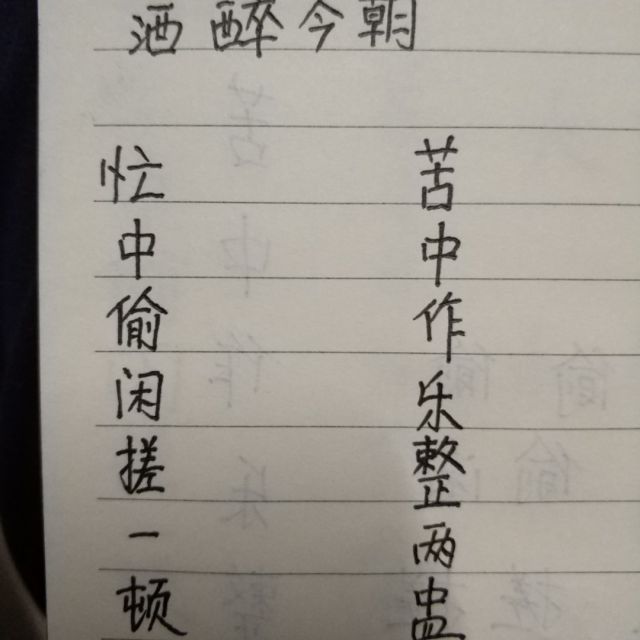 酒醉今朝
忙中偷闲搓一顿
苦中作乐整两盅